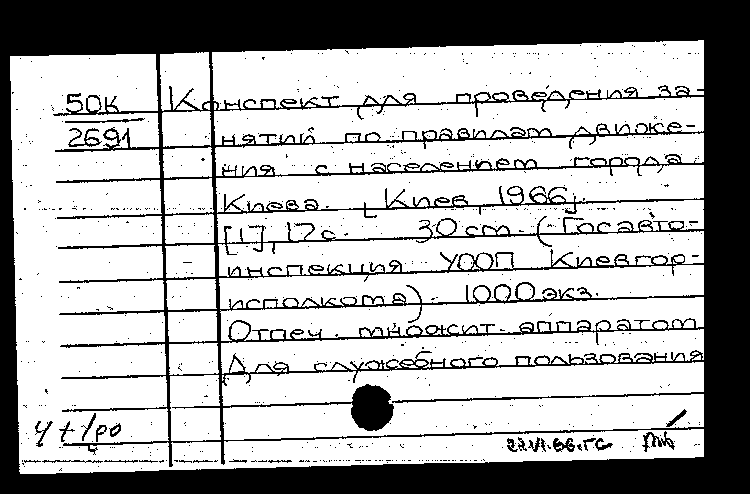 50К Конспект для проведения за-
2691 нятий по правилам движе-
ния с населением города
Киева. [Киев, 1966].
[1], 17 с. 30 см. (Госавто-
инспекция УООП Киевгор-
исполкома). 1000 экз.
Отпеч. множит. аппаратом
Для служебного пользования
22.VI.66.ГС